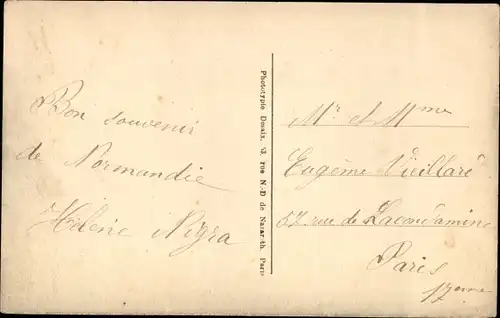 Bon souvenir
de Normandie
Hélène Nigra
Phototypie Desaix, 13, rue N.-D de Nazareth. Paris
Mr et Mme
Eugène Vieillard
57 rue de Lacondamine
Paris
17eme